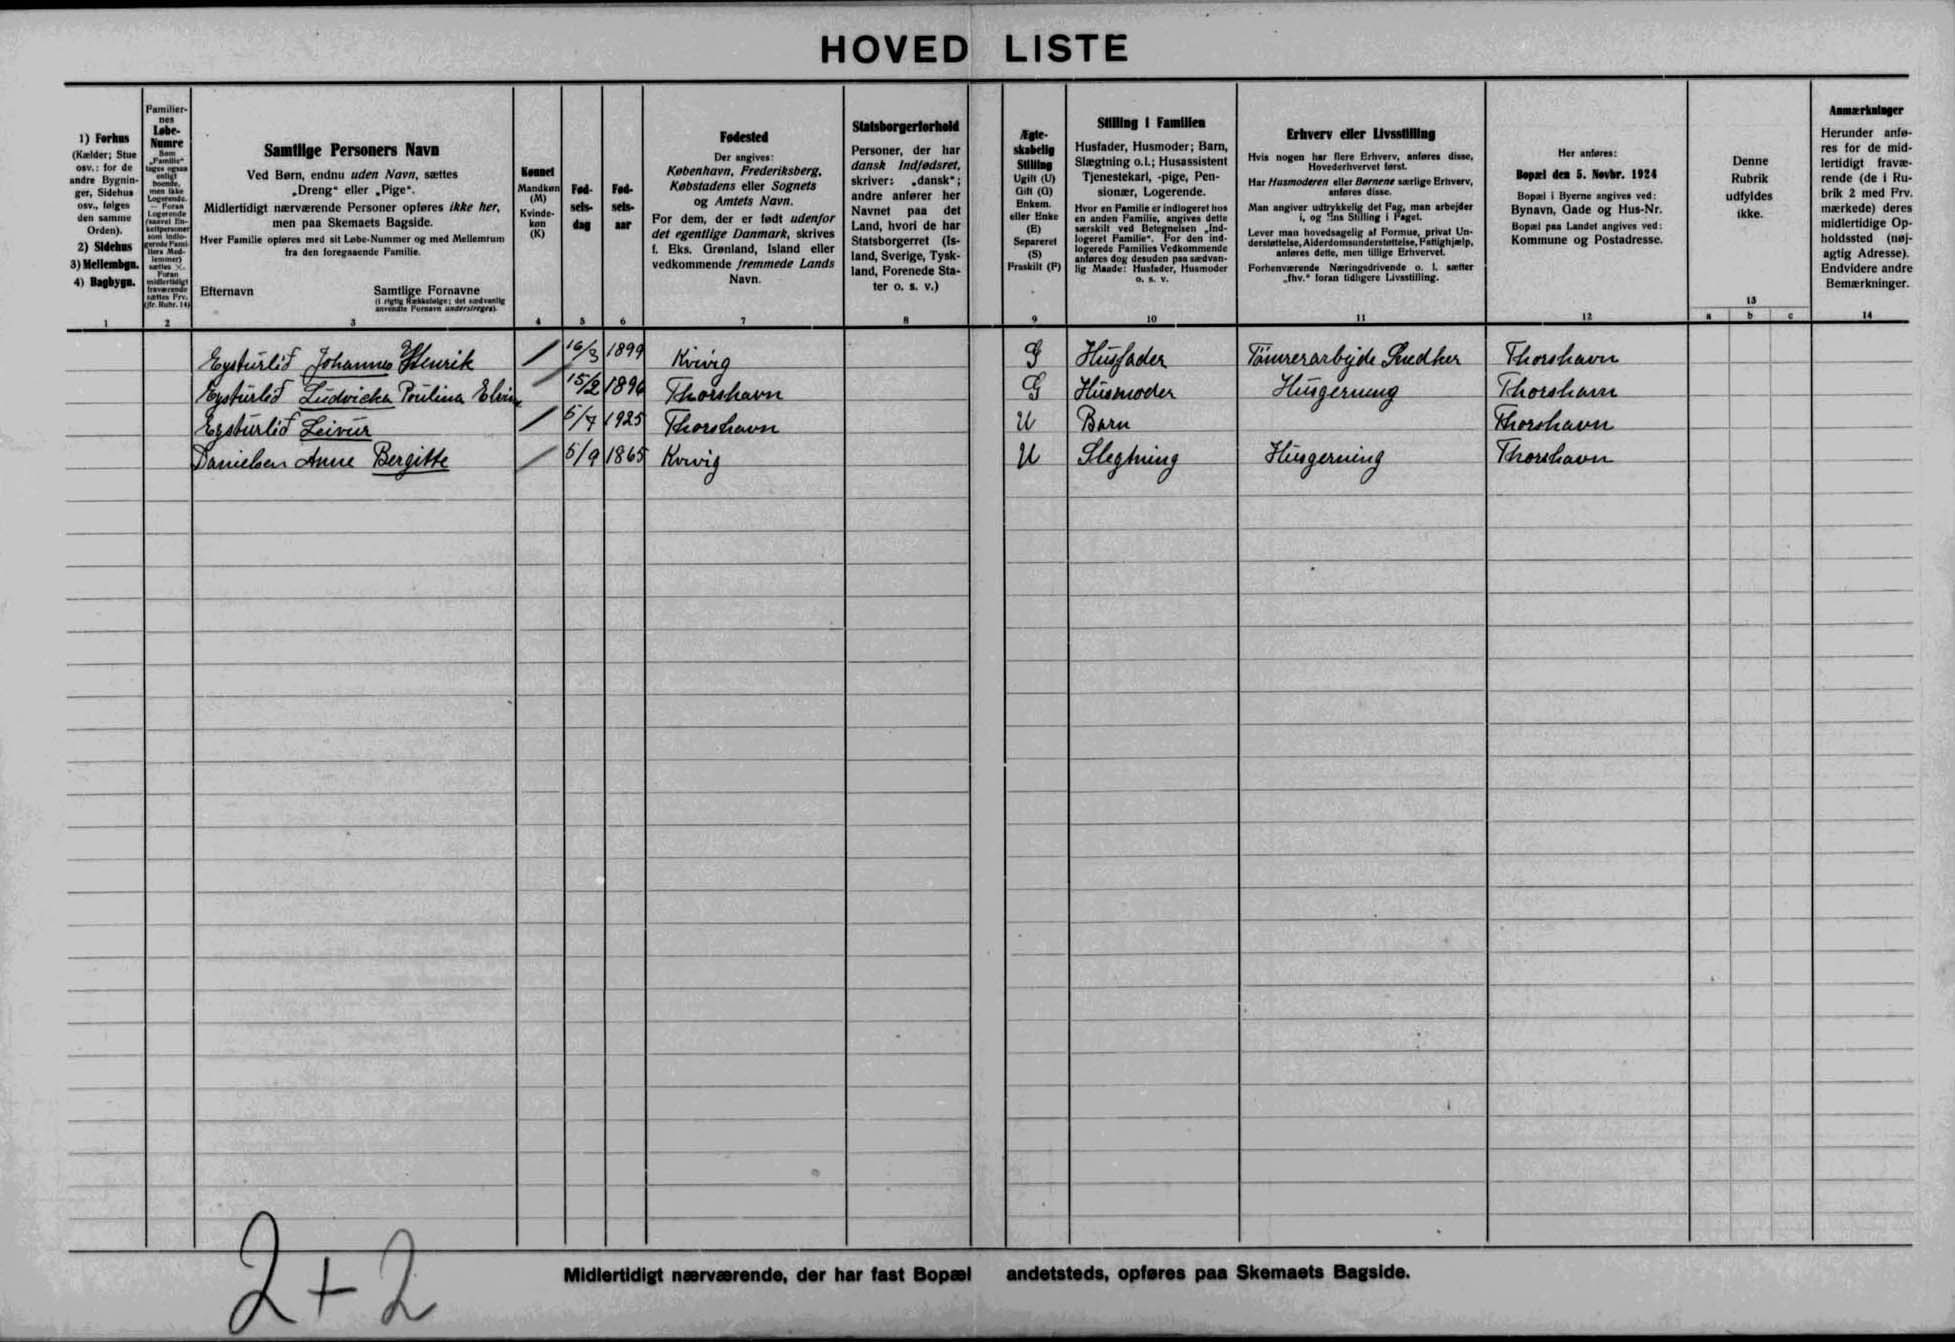 HOVED LISTE
1) Forhus
(Kælder; Stue
osv.; for de
andre Bygnin-
ger, Sidehus
osv., følges
den samme
Orden).
2) Sidehus
3) Mellembgn.
4) Bagbygn.
1
Familier-
nes
Løbe-
Numre
Som
„Familie“
tages ogsaa
enligt
boende,
men ikke
Logerende.
— Foran
Logerende
2
Samtlige Personers Navn
Ved Børn, endnu uden Navn, sættes
„Dreng“ eller „Pige“.
Midlertidigt nærværende Personer opføres ikke her,
men paa Skemaets Bagside.
Hver Familie opføres med sit Løbe-Nummer og med Mellemrum
fra den foregaaende Familie.
Efternavn Samtlige Fornavne
(i rigtig Rækkefølge; det sædvanlig
anvendte Fornavn understreges).
3
Kønnet
Mandkøn
(M)
Kvinde-
køn
(K)
4
Fød-
sels-
dag
5
Fød-
sels-
aar
6
Fødested
Der angives:
København, Frederiksberg,
Købstadens eller Sognets
og Amtets Navn.
For dem, der er født udenfor
det egentlige Danmark, skrives
f. Eks. Grønland, Island eller
vedkommende fremmede Lands
Navn.
7
Statsborgerforhold
Personer, der har
dansk Indfødsret,
skriver: „dansk“;
andre anfører her
Navnet paa det
Land, hvori de har
Statsborgerret (Is-
land, Sverige, Tysk-
land, Forenede Sta-
ter o. s. v.)
8
Ægte-
skabelig
Stilling
Ugift (U)
Gift (G)
Enkem.
eller Enke
(E)
Separeret
(S)
Fraskilt (F)
9
Stilling i Familien
Husfader, Husmoder; Barn,
Slægtning o.l.; Husassistent
Tjenestekarl, -pige, Pen-
sionær, Logerende.
Hvor en Familie er indlogeret hos
en anden Familie, angives dette
særskilt ved Betegnelsen „Ind-
logeret Familie“. For den ind-
logerede Families Vedkommende
anføres dog desuden paa sædvan-
lig Maade: Husfader, Husmoder
o. s. v.
10
Erhverv eller Livsstilling
Hvis nogen har flere Erhverv, anføres disse,
Hovederhvervet først.
Har Husmoderen eller Børnene særlige Erhverv,
anføres disse.
Man angiver udtrykkelig det Fag, man arbejder
i, og ens Stilling i Faget.
Lever man hovedsagelig af Formue, privat Un-
derstøttelse, Alderdomsunderstøttelse, Fattighjælp,
anføres dette, men tillige Erhvervet.
Forhenværende Næringsdrivende o. l. sætter
„fhv.“ foran tidligere Livsstilling.
11
Her anføres:
Bopæl den 5. Novbr. 1924
Bopæl i Byerne angives ved:
Bynavn, Gade og Hus-Nr.
Bopæl paa Landet angives ved:
Kommune og Postadresse.
12
Denne
Rubrik
udfyldes
ikke.
13
a b c
Anmærkninger
Herunder anfø-
res for de mid-
lertidigt fravæ-
rende (de i Ru-
brik 2 med Frv.
mærkede) deres
midlertidige Op-
holdssted (nøj-
agtig Adresse).
Endvidere andre
Bemærkninger.
14
Eysturlid Johannes Henrik / 16/3 1899 Kvivig G Husfader Tømrerarbejde Snedker Thorshavn
Eysturlid Ludvicka Poulina Elvina / 15/2 1896 Thorshavn G Husmoder Husgerning Thorshavn
Eysturlid Leivur / 5/7 1925 Thorshavn U Barn Thorshavn
Danielsen Anne Bergitte / 5/9 1865 Kvivig U Slegtning Husgerning Thorshavn
2 + 2
Midlertidigt nærværende, der har fast Bopæl andetsteds, opføres paa Skemaets Bagside.